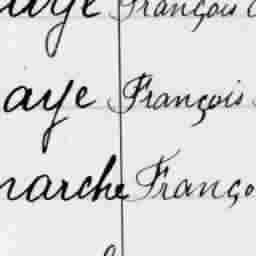 aye François
aye François
marche Franço